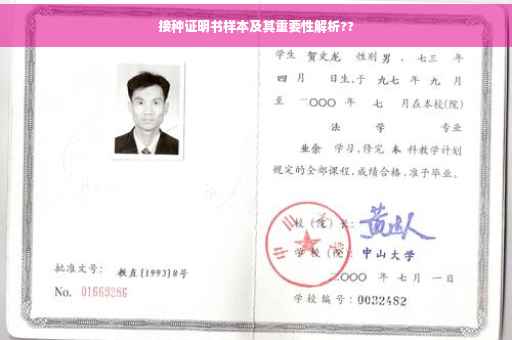 接种证明书样本及其重要性解析??
学生 贺文龙 性别 男 、七三 年
四 月 日生,于 九七 年 九 月
至 二〇〇〇 年 七 月在本校(院)
法 学 专业
业余 学习,修完 本 科教学计划
规定的全部课程,成绩合格,准予毕业。
校 (院) 长:
学 校 (院): 中山大学
二〇〇〇 年 七 月 一 日
批准文号: 教直(1993)8号
No. 01669286
学校编号: 0032482